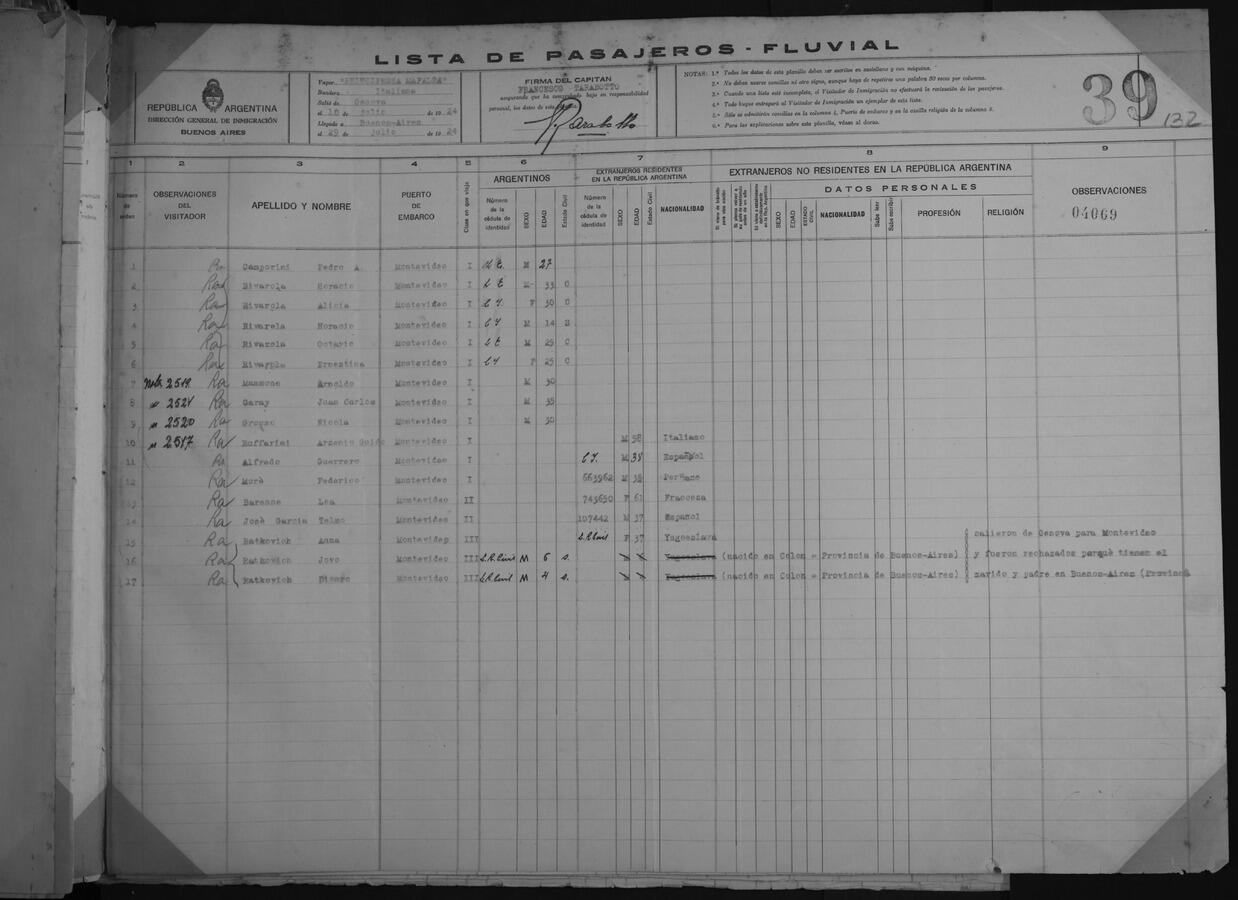 LISTA DE PASAJEROS - FLUVIAL
REPÚBLICA ARGENTINA
DIRECCIÓN GENERAL DE INMIGRACIÓN
BUENOS AIRES
Vapor "PRINCIPESSA MAFALDA"
Bandera Italiana
Salió de Genova
el 18 de Julio de 1924
Llegado a Buenos-Aires
el 29 de Julio de 1924
FIRMA DEL CAPITAN
FRANCESCO TARABOTTO
asegurando que ha comprobado bajo su responsabilidad
personal, los datos de esta
NOTAS: 1.ª Todos los datos de esta planilla deben ser escritos en castellano y con máquina.
2.ª No deben usarse comillas ni otro signo, aunque haya de repetirse una palabra 50 veces por columna.
3.ª Cuando una lista esté incompleta, el Visitador de Inmigración no efectuará la revisación de los pasajeros.
4.ª Todo buque entregará al Visitador de Inmigración un ejemplar de esta lista.
5.ª Sólo se admitirán comillas en la columna 4, Puerto de embarco y en la casilla religión de la columna 8.
6.ª Para las explicaciones sobre esta planilla, véase al dorso.
39
132
1 2 3 4 5 6 7 8 9
Número de orden
OBSERVACIONES DEL VISITADOR
APELLIDO Y NOMBRE
PUERTO DE EMBARCO
Clase en que viaja
ARGENTINOS
Número de la cédula de identidad
SEXO
EDAD
Estado Civil
EXTRANJEROS RESIDENTES EN LA REPÚBLICA ARGENTINA
Número de la cédula de identidad
SEXO
EDAD
Estado Civil
NACIONALIDAD
EXTRANJEROS NO RESIDENTES EN LA REPÚBLICA ARGENTINA
DATOS PERSONALES
SEXO
EDAD
ESTADO CIVIL
NACIONALIDAD
Sabe leer
Sabe escribir
PROFESIÓN
RELIGIÓN
OBSERVACIONES
04069
1 Ra Camporini Pedro A. Montevideo I L E. M 27
2 Ra Rivarola Horacio Montevideo I L E M 33 C
3 Ra Rivarola Alicia Montevideo I C I F 30 C
4 Ra Rivarola Horacio Montevideo I C I M 14 S
5 Ra Rivarola Octavio Montevideo I L E M 25 C
6 Ra Rivarola Ernestina Montevideo I C I F 25 C
7 Nota 2519 Ra Massone Arnoldo Montevideo I M 30
8 " 2521 Ra Garay Juan Carlos Montevideo I M 35
9 " 2520 Ra Grosso Nicola Montevideo I M 50
10 " 2517 Ra Buffarini Arsenio Guido Montevideo I M 58 Italiano
11 Ra Alfredo Guerrero Montevideo I C I. M 38 Español
12 Ra Morè Federico Montevideo I 663962 M 35 Peruano
13 Ra Baronne Lea Montevideo II 743650 F 61 Francesa
14 Ra Josè Garcia Telmo Montevideo II 107442 M 37 Español
15 Ra Ratkovich Anna Montevideo III L.R. Civil F 37 Yugoeslava salieron de Genova para Montevideo
16 Ra Ratkovich Jovo Montevideo III L.R. Civil M 6 s. Yugoeslava (nacido en Colon - Provincia de Buenos-Aires) y fueron rechazados porquè tienen el
17 Ra Ratkovich Montevideo III L.R. Civil M 4 s. Yugoeslava (nacido en Colon - Provincia de Buenos-Aires) marido y padre en Buenos-Aires (Provinci